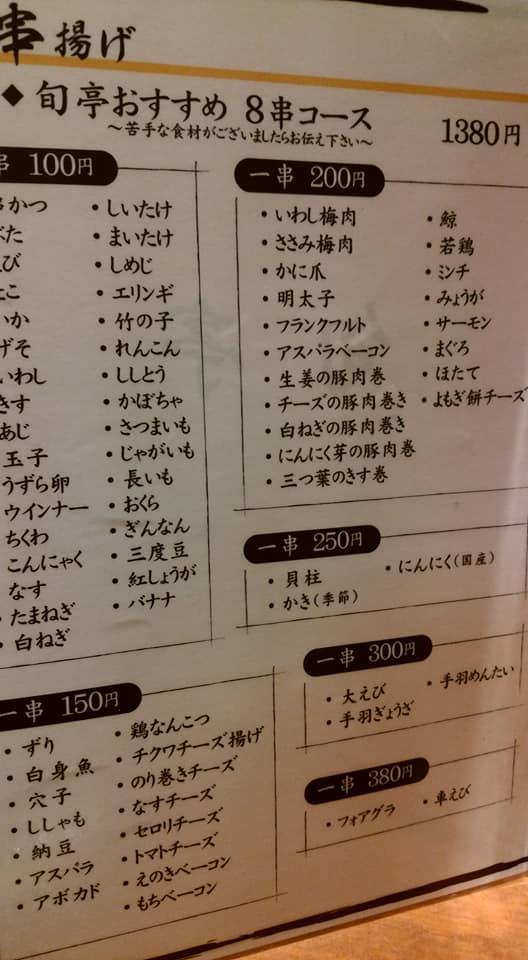 串揚げ
◆旬亭おすすめ 8串コース 1380円
～苦手な食材がございましたらお伝え下さい～
串 100円
串かつ
ぶた
えび
たこ
いか
げそ
いわし
きす
あじ
玉子
うずら卵
ウインナー
ちくわ
こんにゃく
なす
・たまねぎ
・白ねぎ
・しいたけ
・まいたけ
・しめじ
・エリンギ
・竹の子
・れんこん
・ししとう
・かぼちゃ
・さつまいも
・じゃがいも
・長いも
・おくら
・ぎんなん
・三度豆
・紅しょうが
・バナナ
一串 150円
・ずり
・白身魚
・穴子
・ししゃも
・納豆
・アスパラ
・アボカド
・鶏なんこつ
・チクワチーズ揚げ
・のり巻きチーズ
・なすチーズ
・セロリチーズ
・トマトチーズ
・えのきベーコン
・もちベーコン
一串 200円
・いわし梅肉
・ささみ梅肉
・かに爪
・明太子
・フランクフルト
・アスパラベーコン
・生姜の豚肉巻
・チーズの豚肉巻き
・白ねぎの豚肉巻き
・にんにく芽の豚肉巻
・三つ葉のきす巻
・鯨
・若鶏
・ミンチ
・みょうが
・サーモン
・まぐろ
・ほたて
・よもぎ餅チーズ
一串 250円
・貝柱
・かき(季節)
・にんにく(国産)
一串 300円
・大えび
・手羽ぎょうざ
・手羽めんたい
一串 380円
・フォアグラ
・車えび